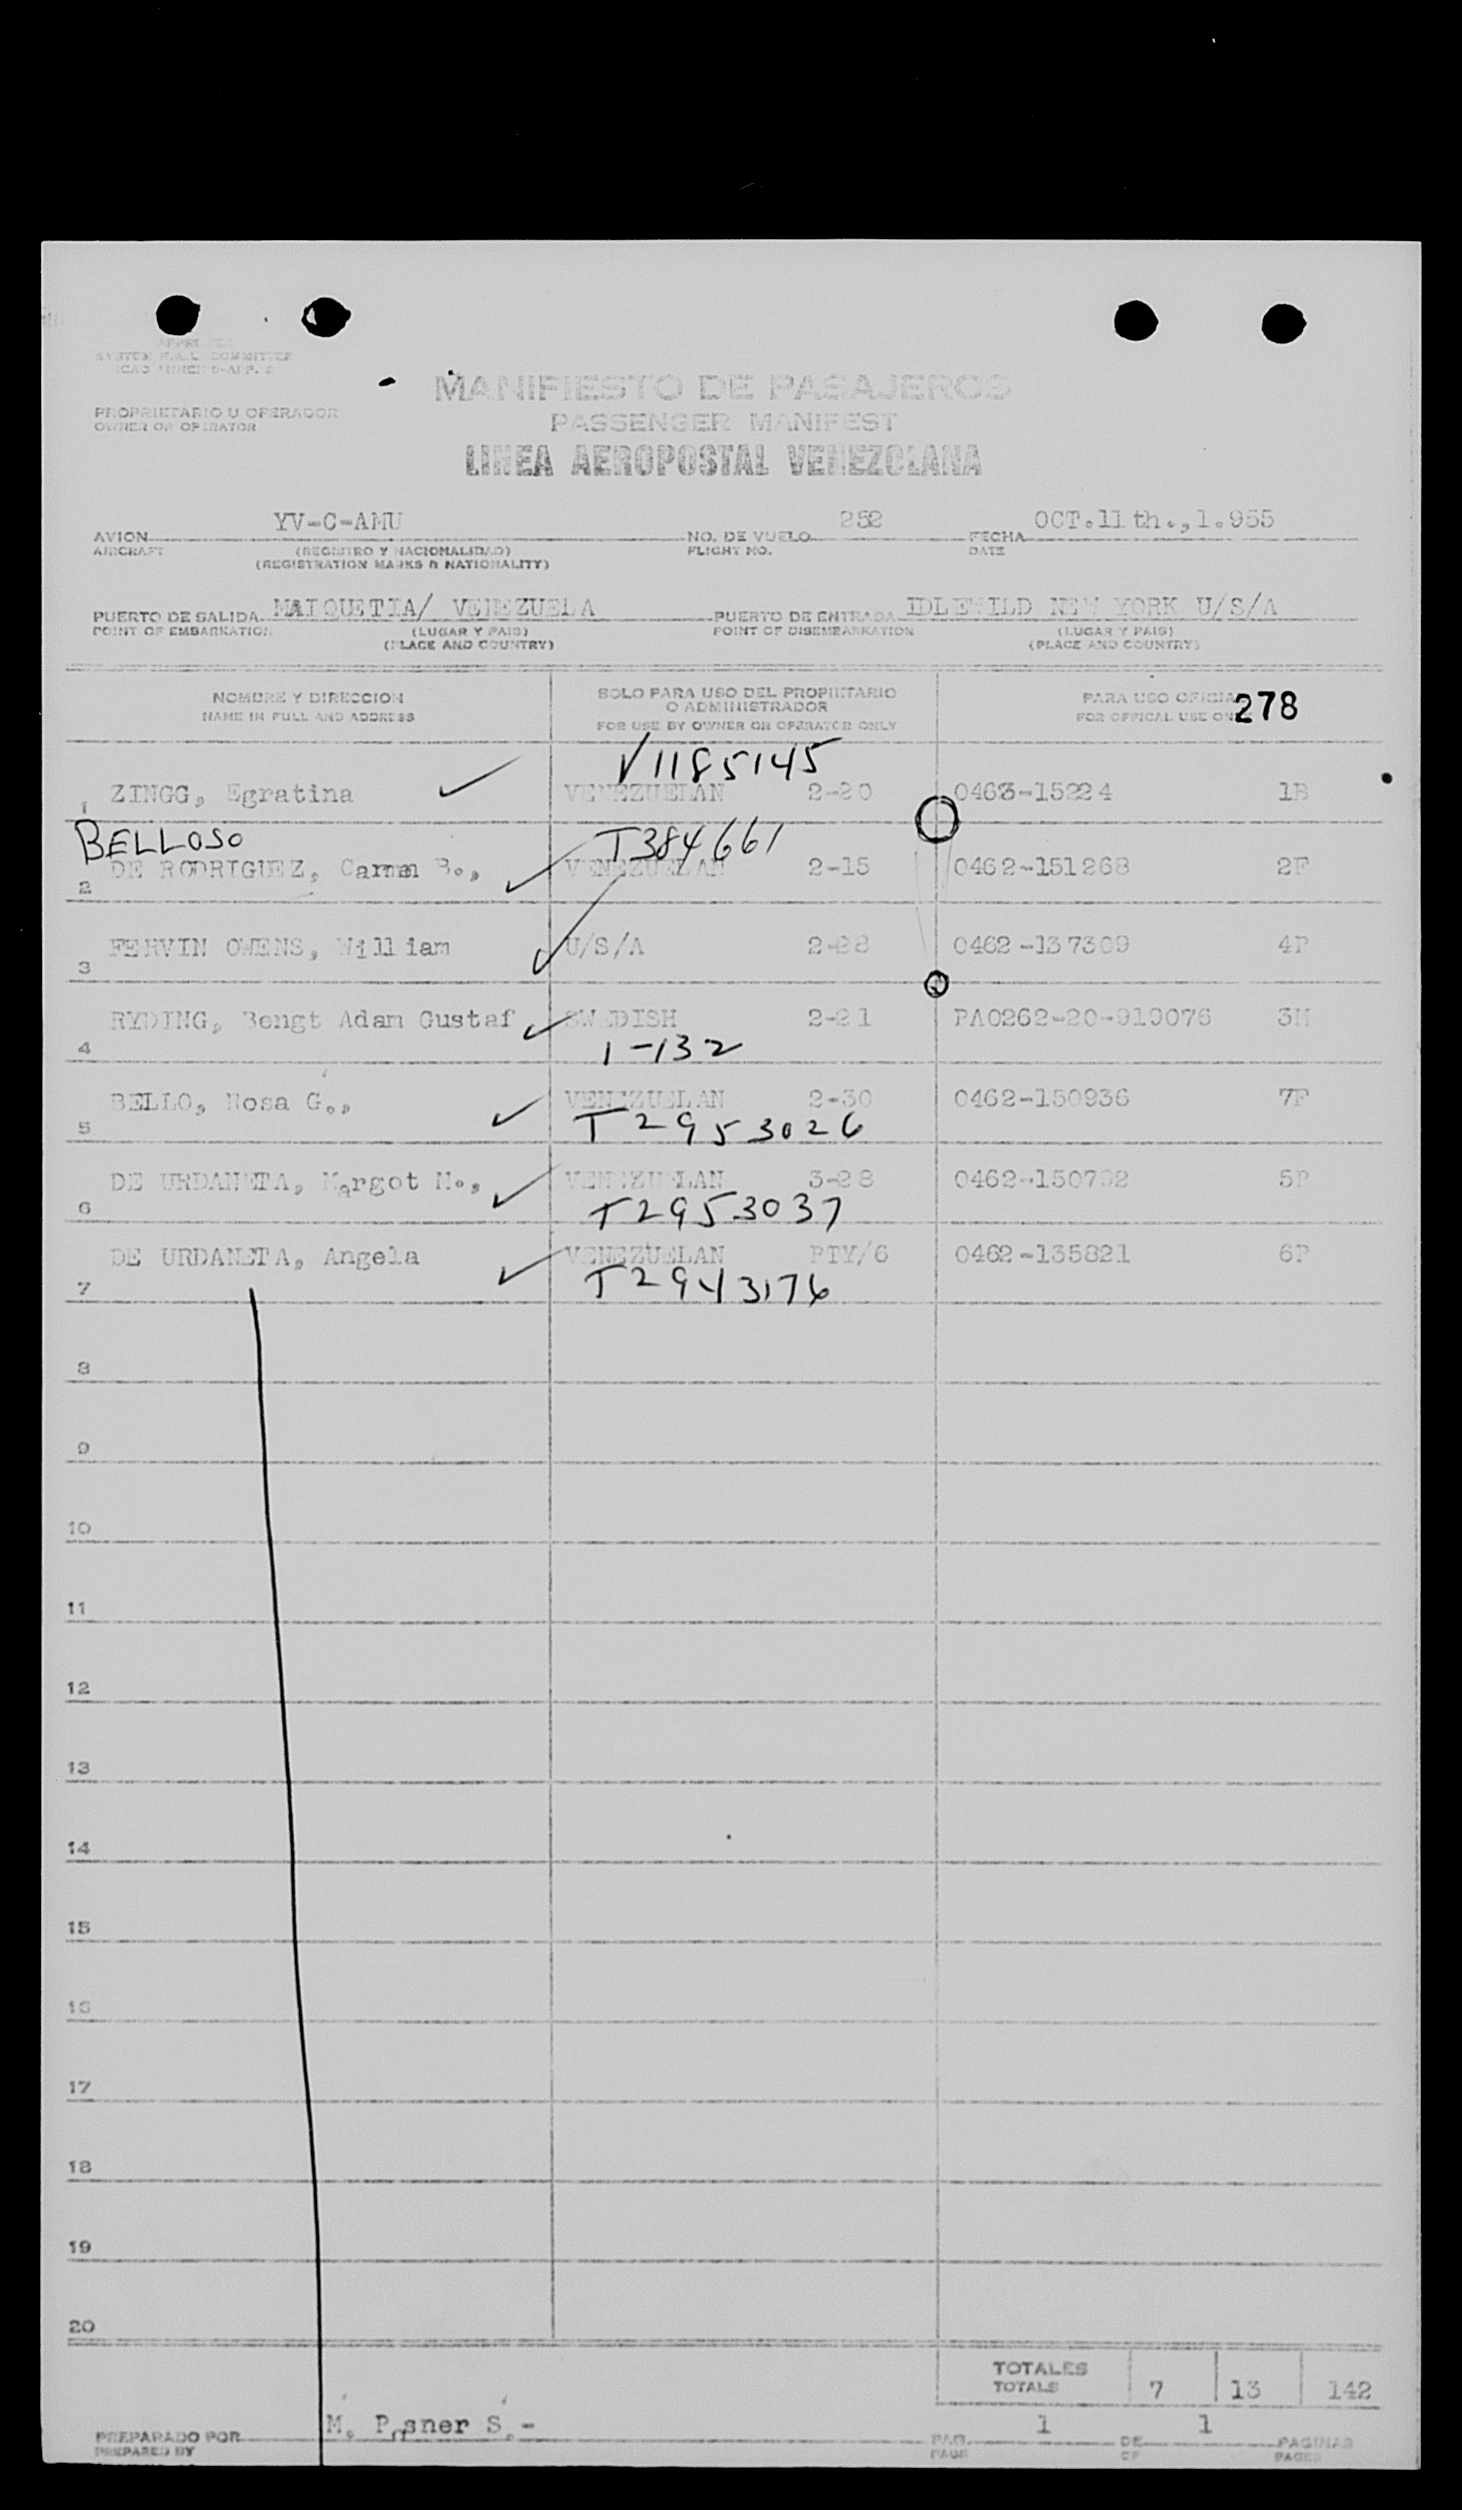 SYSTEM F.A.L. COMMITTEE
PROPRIETARIO U OPERADOR
OWNER OR OPERATOR
MANIFIESTO DE PASAJEROS
PASSENGER MANIFEST
LINEA AEROPOSTAL VENEZOLANA
AVION YV-C-AMU NO. DE VUELO 252 FECHA OCT.11th.,1.955
AIRCRAFT (REGISTRO Y NACIONALIDAD) FLIGHT NO. DATE
(REGISTRATION MARKS & NATIONALITY)
PUERTO DE SALIDA MAIQUETIA/ VENEZUELA PUERTO DE ENTRADA IDLEWILD NEW YORK U/S/A
POINT OF EMBARKATION (LUGAR Y PAIS) POINT OF DISEMBARKATION (LUGAR Y PAIS)
(PLACE AND COUNTRY) (PLACE AND COUNTRY)
NOMBRE Y DIRECCION SOLO PARA USO DEL PROPIETARIO PARA USO OFICIAL
O ADMINISTRADOR
NAME IN FULL AND ADDRESS FOR USE BY OWNER OR OPERATOR ONLY FOR OFFICAL USE ON 278
V1185145
1 ZINGG, Egratina VENEZUELAN 2-20 0463-15224 1B
BELLOSO T384661
2 DE RODRIGUEZ, Carmen B., VENEZUELAN 2-15 0462-151268 2F
3 FERVIN OWENS, William U/S/A 2-28 0462-137309 4P
4 RYDING, Bengt Adam Gustaf SWEDISH 2-21 PA0262-20-919076 3M
1-132
5 BELLO, Rosa G., VENEZUELAN 2-30 0462-150936 7F
T2953026
6 DE URDANETA, Margot M., VENEZUELAN 3-28 0462-150792 5P
T2953037
7 DE URDANETA, Angela VENEZUELAN PTY/6 0462-135821 6P
T2943176
8
9
10
11
12
13
14
15
16
17
18
19
20
TOTALES
TOTALS 7 13 142
PREPARADO POR M. Posner S.- PAG. 1 DE 1 PAGINAS
PREPARED BY PAGE OF PAGES